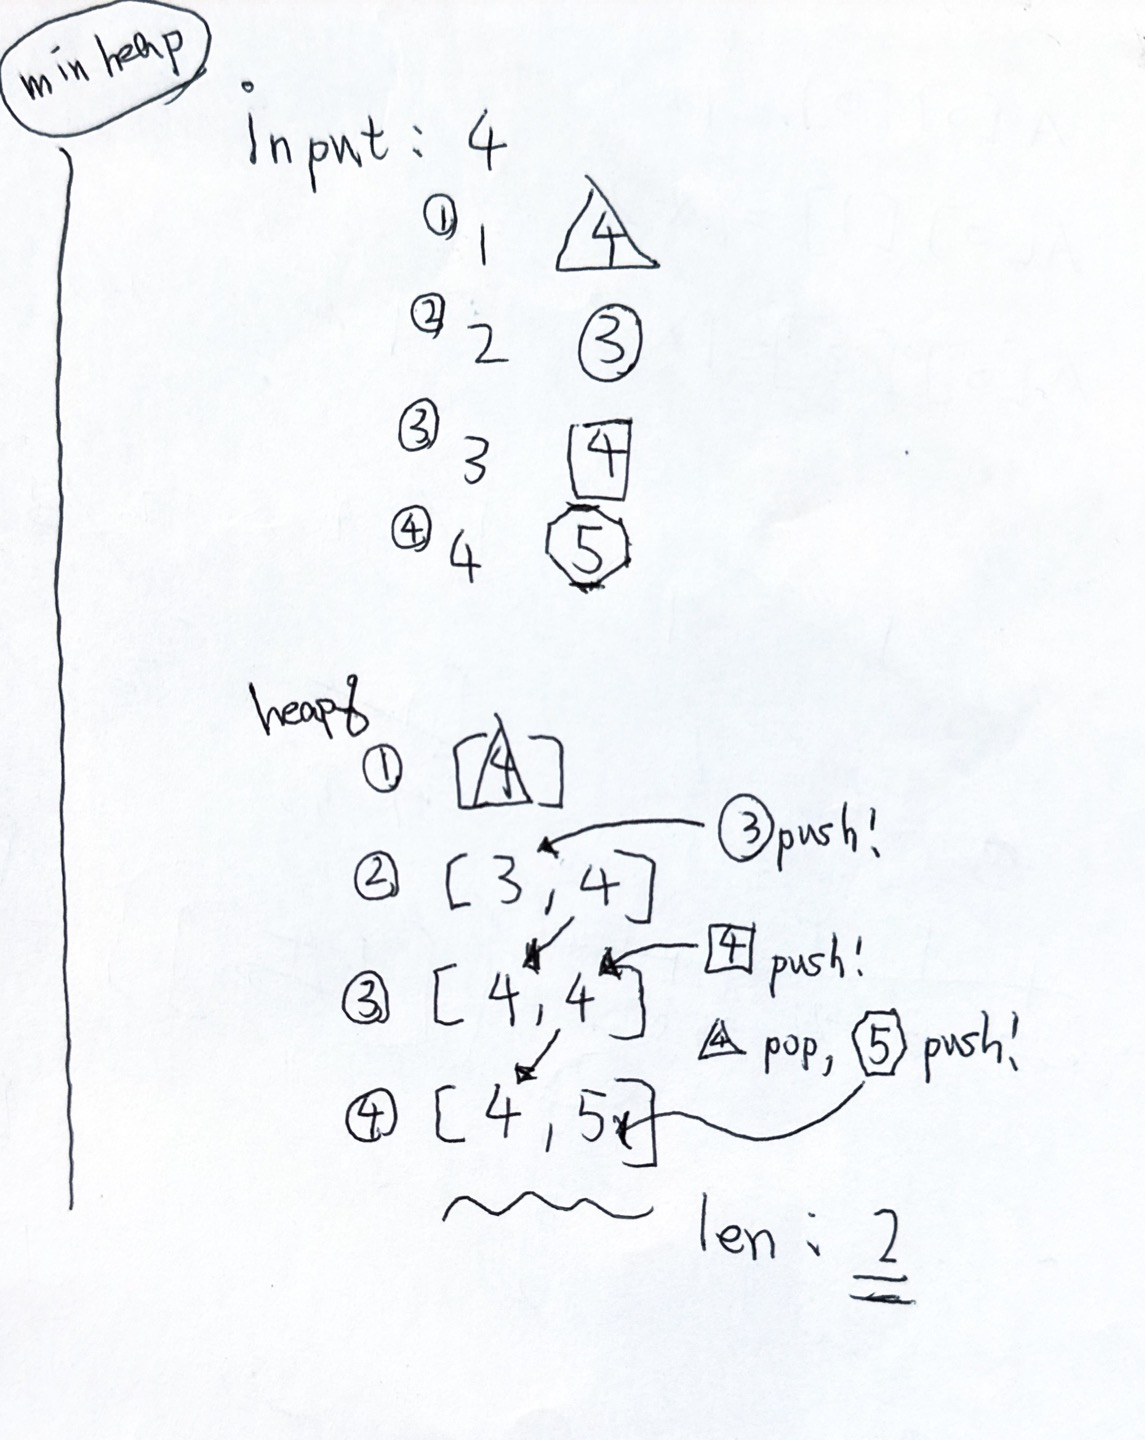 min heap
input: 4
① 1 4
② 2 3
③ 3 4
④ 4 5
① [4]
② [3, 4] 3 push!
③ [4, 4] 4 push!
4 pop, 5 push!
④ [4, 5]
len: 2